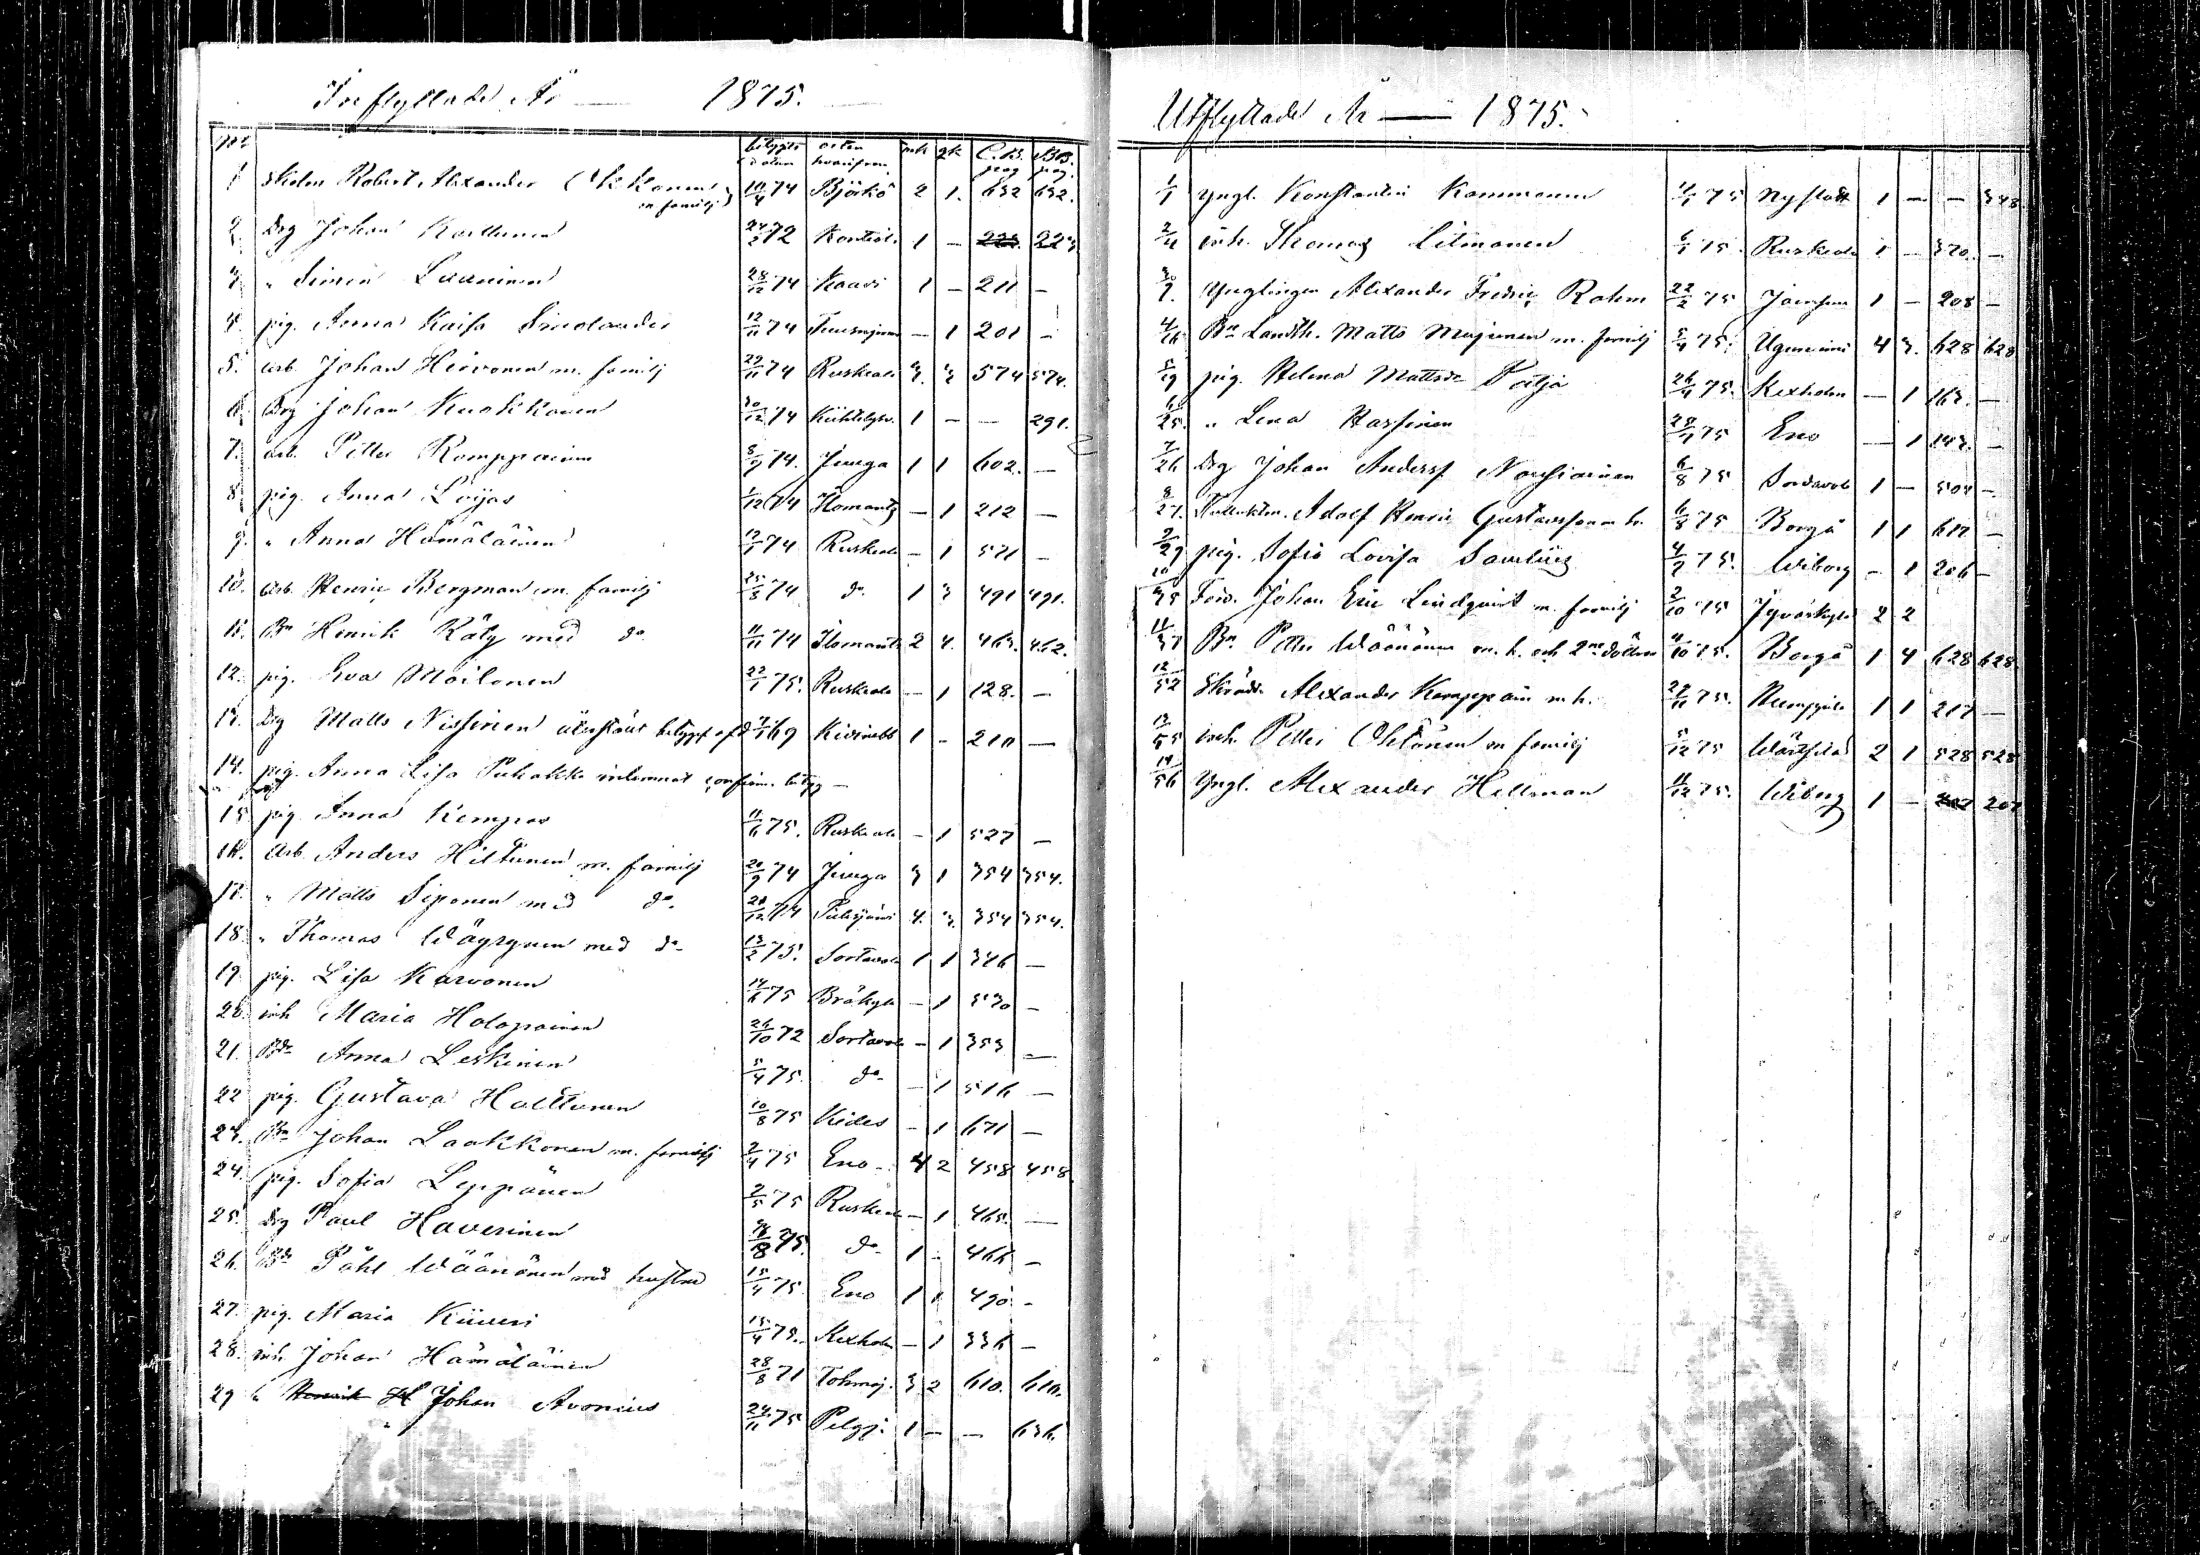 Inflyttade År — 1875.
No betygets datum orten hvarifrån mk qk C.B. pag B.B. pag.
1 Robert Alexander Okkonen m familj 10/4 74 Björkö 2 1. 632 632.
2 Drg Johan Karttunen 24/3 72 Kontiol. 1 — 223.
3 " Simon Launinen 28/12 74 Kaavi 1 — 211 —
4. pig. Anna Kaisa 12/11 74 — 1 201 —
5. arb. Johan Hirvonen m. familj 29/11 74 Ruskeala 3. 3 574 574.
6. Drg Johan Kuokkanen 30/12 74 Kiihtelysv. 1 — — 291.
7. arb. Petter Romppainen 8/9 74. Juuga 1 1 602. —
8. pig. Anna 1/12 74 Ilomants — 1 212 —
9. " Anna Hämäläinen 74 Ruskeala — 1 571 —
10. arb. Henric Bergman m. familj 25/8 74 do 1 3 491 491.
11. Bn Henrik Räty med do 11/11 74 Ilomants 2 4. 463. 462.
12. pig. Eva Moilanen 22/1 75. Ruskeala — 1 128. —
13. Drg Matts Nissinen betyget af d 69 Kivinebb 1 - 210 —
14. pig. Anna Lisa Puhakka inlemnat confirm. betyg —
15 pig Anna Kempas 11/6 75. Ruskeala - 1 527 —
16. Arb. Anders Hiltunen m. familj 20/9 74 Juuga 3 1 354 354.
17. " Matts Siponen med do. 20/12 74 Pielisjärvi 4. 3. 354 354.
18. " Thomas Wäyrynen med do- 13/2 75. Sortavala 1 1 346 —
19. pig. Lisa Karvonen 14/6 75 Bräkylä - 1 530 -
20. inh Maria Holopainen 26/10 72 Sortavala - 1 353 —
21. Anna Leskinen 5/4 75. do- - 1 516 —
22 pig. Gustava Holttunen 10/8 75 Kides - 1 671 —
23. Bn Johan Laakkonen m. familj 2/4 75 Eno- 4 2 458 458
24. pig. Sofia Leppänen 2/5 75 Ruskeala — 1 465. —
25. Drg Paul Haverinen 75. do- 1 - 466 —
26. Påhl Wäänänen med hustru 15/4 75 Eno 1 1 490 -
27. pig. Maria Kiiveri 15/4 75. Kexholm — 1 336 —
28. inh Johan Hämäläinen 28/8 71 Tohmaj. 3 2 610. 610.
29 " Henrik H Johan Avonius 24/11 75 Pelgj. 1 — — 636.
Utflyttade År — 1875.
1/1 yngl. Konstantin Kammonen 75 Nystadt 1 — — 348
2/4 inh. Thomas Litmanen 75. Ruskeala 1 — 370. —
3/7. Ynglingen Alexander Fredric Rahm 22/2 75 1 — 208 —
4/16 Bn Landth. Matts Majunen m. familj 5/4 75. Uguniemi 4 3. 628 628
5/19 pig. Helena Mattsdr 26/4 75. Kexholm — 1 163. —
6/25. " Lena Hassinen 28/4 75 Eno — 1 143. —
7/26 Drg Johan Anderss. Nousiainen 6/8 75 Sordavala 1 — 504 —
8/27. Adolf Henric Gustavsson m h. 6/8 75 Borgå 1 1 617 —
9/29 pig. Sofia Lovisa 4/9 75. Wiborg — 1 206 —
10/35 Johan Eric Lindqvist m. familj 2/10 75 Jyväskylä 2 2
11/37 Bn Petter Wäänänen m. h. och 2ne döttrar 4/10 75. Borgå 1 4 628 628
12/52 Skrädd. Alexander Kamppain m. h. 29/11 75. 1 1 217 —
13/55 inh. Petter Ohtonen m familj 5/12 75 Wärtsilä 2 1 528 528
14/56 Yngl. Alexander Hellman 11/12 75. Wiborg 1 — 207